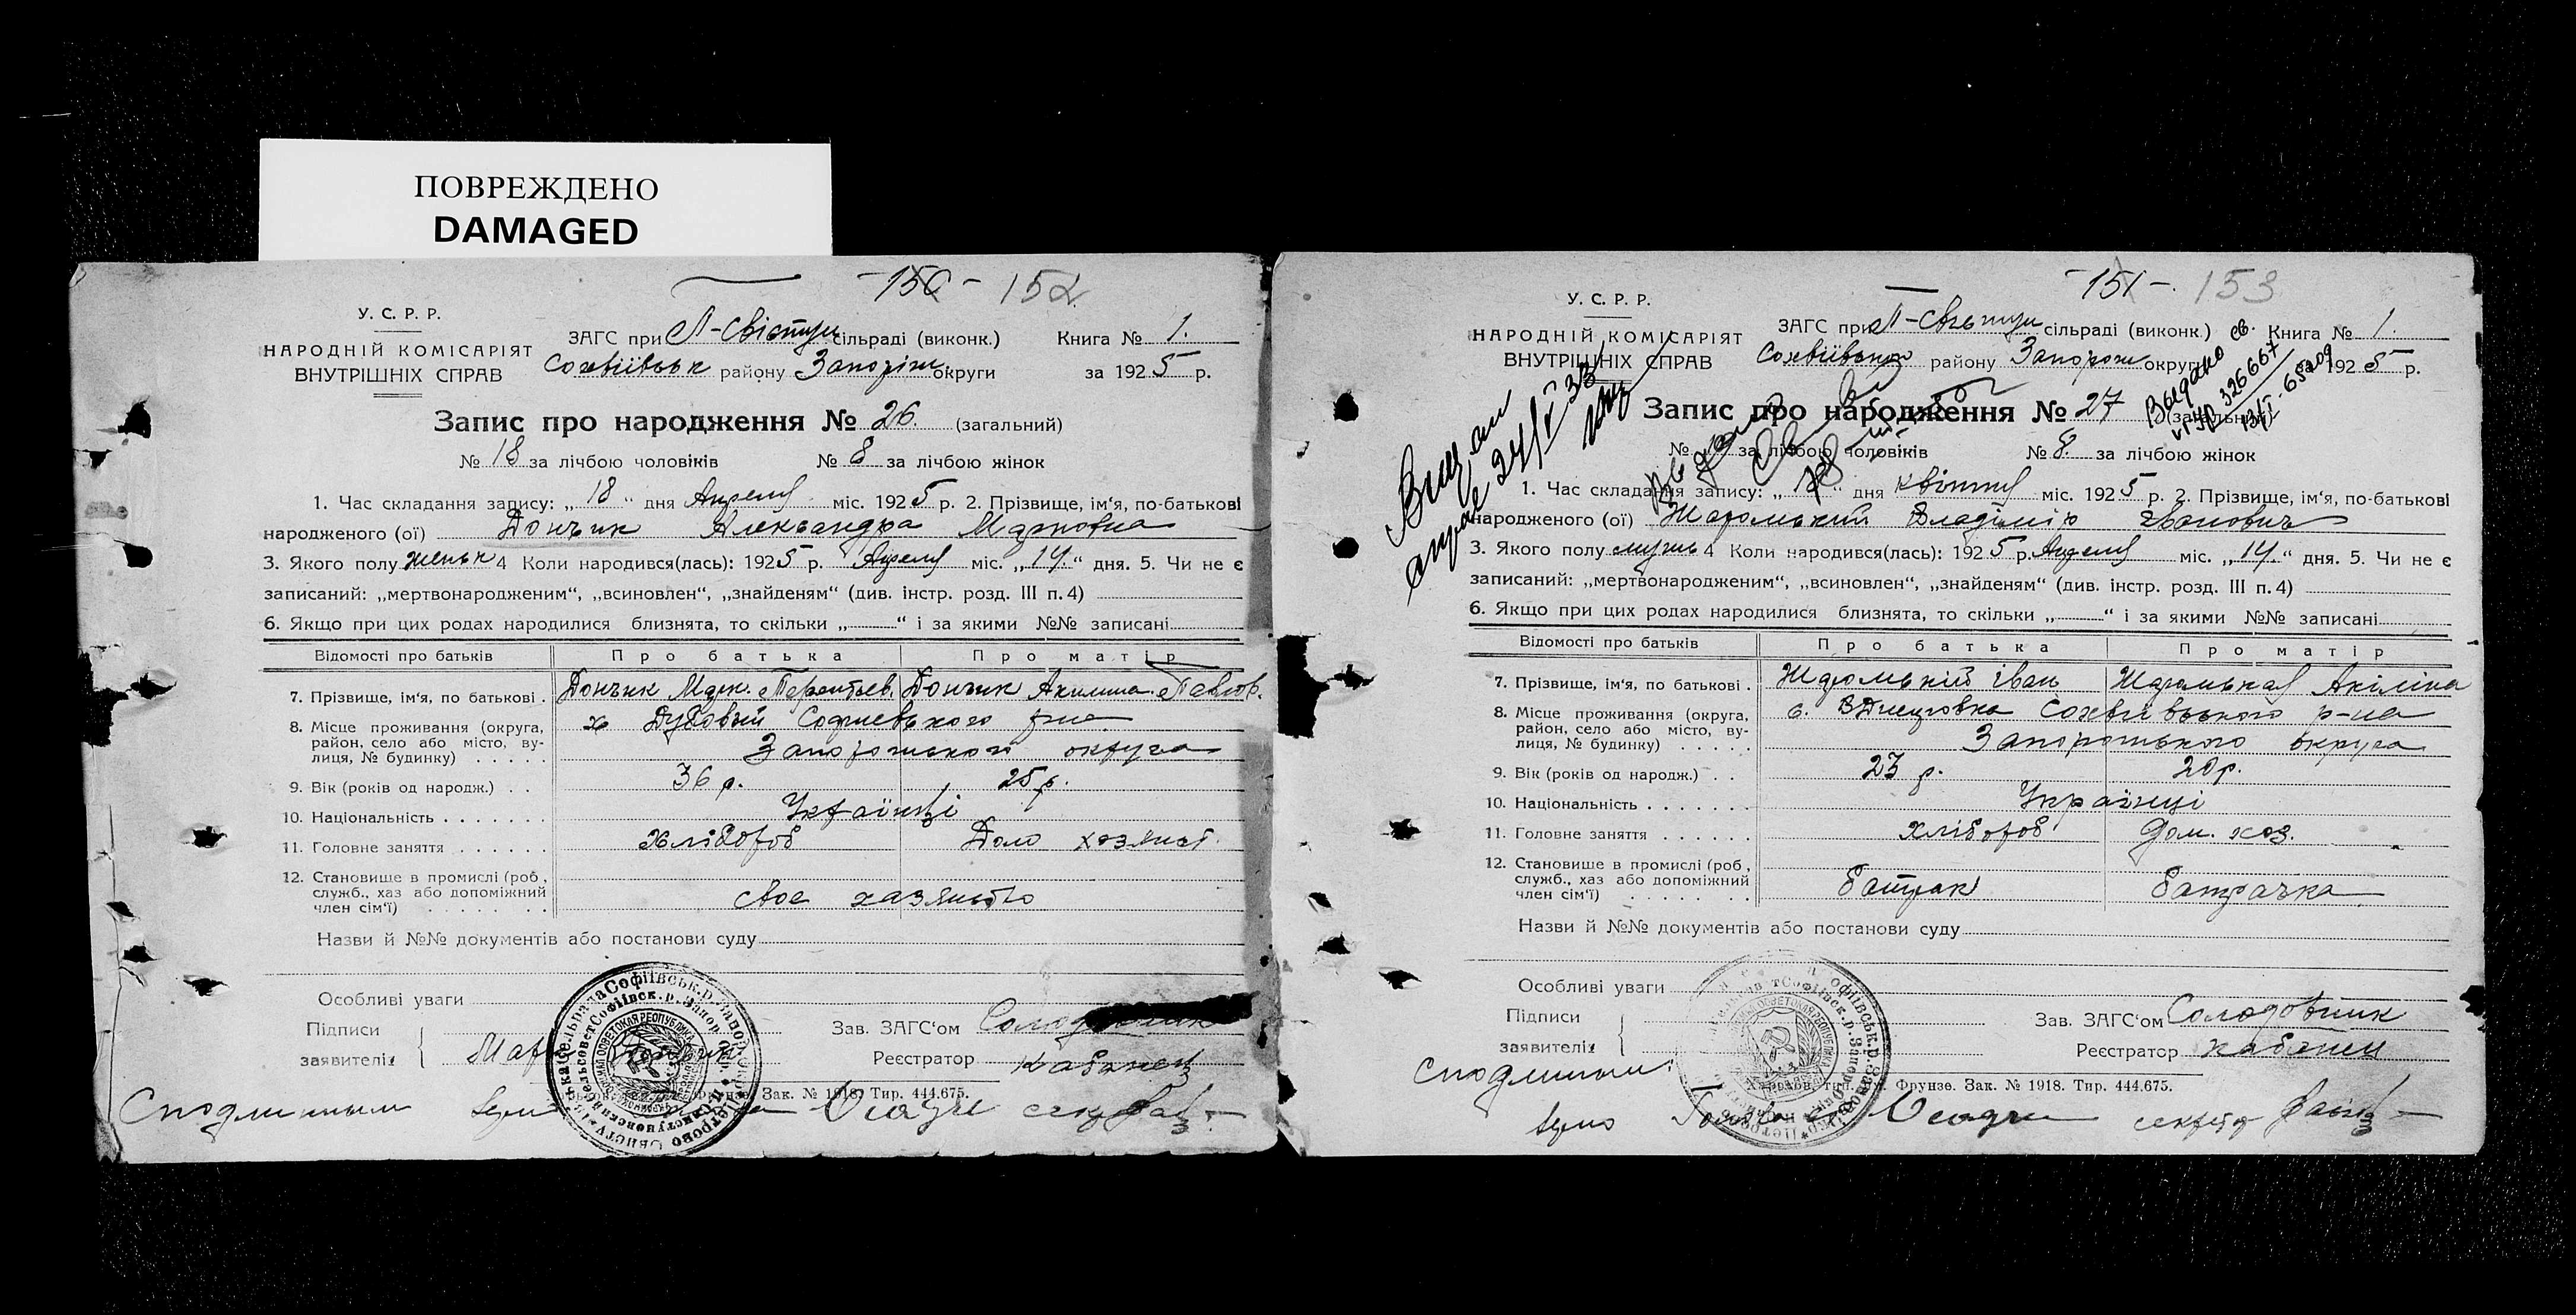 ПОВРЕЖДЕНО
DAMAGED
-150- 152
У. С. Р. Р.
НАРОДНІЙ КОМІСАРІЯТ
ВНУТРІШНІХ СПРАВ
ЗАГС при П-Свісту сільраді (виконк.) Книга № 1.
Софіївськ району Запоріж округи за 1925 р.
Запис про народження № 26. (загальний)
№ 18 за лічбою чоловіків № 8 за лічбою жінок
1. Час складання запису: „18“ дня Апреля міс. 1925 р. 2. Прізвище, ім‘я, по-батькові
народженого (ої) Дончик Александра Марковна
3. Якого полу женськ 4 Коли народився(лась): 1925 р. Апреля міс. „14.“ дня. 5. Чи не є
записаний: „мертвонародженим“, „всиновлен“, „знайденям“ (див. інстр. розд. III п. 4)
6. Якщо при цих родах народилися близнята, то скільки „ “ і за якими №№ записані
Відомості про батьків Про батька Про матір
7. Прізвище, ім‘я, по батькові . Дончик Марк. Терентьев. Дончик Акилина Павлов.
8. Місце проживання (округа, район, село або місто, вулиця, № будинку) х Дубовый Софиевського р-на
Запорожського округа
9. Вік (років од народж.) . . 36 р. 25 р.
10. Національність Українці
11. Головне заняття Хлібороб Дом хозяист.
12. Становище в промислі (роб, служб., хаз або допоміжний член сім‘ї) свое хазяйство
Назви й №№ документів або постанови суду
Особливі уваги
Підписи
заявителів
Зав. ЗАГС‘ом Солодовник
Реєстратор Кабанец
Зак. № 1918. Тир. 444.675.
С подлинным
-151-. 153
У. С. Р. Р.
НАРОДНІЙ КОМІСАРІЯТ
ВНУТРІШНІХ СПРАВ
ЗАГС при П-Свісту сільраді (виконк.) Книга № 1.
Софіївського району Запорож округи за 1925 р.
Выдано св.
326667
Запис про народження № 27 (загальний)
№ за лічбою чоловіків № 8. за лічбою жінок
1. Час складання запису: „18“ дня квітня міс. 1925 р. 2. Прізвище, ім‘я, по-батькові
народженого (ої) Жаромський Владімір Іванович
3. Якого полу мужь 4 Коли народився(лась): 1925 р. Апреля міс. „14.“ дня. 5. Чи не є
записаний: „мертвонародженим“, „всиновлен“, „знайденям“ (див. інстр. розд. III п. 4)
6. Якщо при цих родах народилися близнята, то скільки „ “ і за якими №№ записані
Відомості про батьків Про батька Про матір
7. Прізвище, ім‘я, по батькові . Жаромський Іван Жаромськая Акіліна
8. Місце проживання (округа, район, село або місто, вулиця, № будинку) с. Софиївського р-на
Запорожського округа
9. Вік (років од народж.) . . 23 р. 20 р.
10. Національність Українці
11. Головне заняття хлібороб Дом. хоз.
12. Становище в промислі (роб, служб., хаз або допоміжний член сім‘ї) батрак батрачка
Назви й №№ документів або постанови суду
Особливі уваги
Підписи
заявителів
Зав. ЗАГС‘ом Солодовник
Реєстратор Кабанец
Фрунзе. Зак. № 1918. Тир. 444.675.
С подлинным